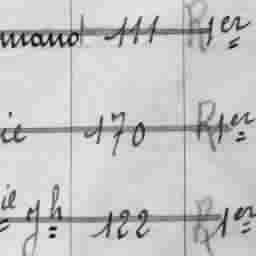 mano 111 R 1er
ie 170 R 1er
ie Jh 122 R 1er